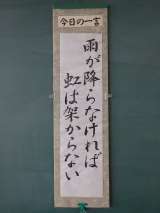 今日の一言
雨が降らなければ
虹は架からない